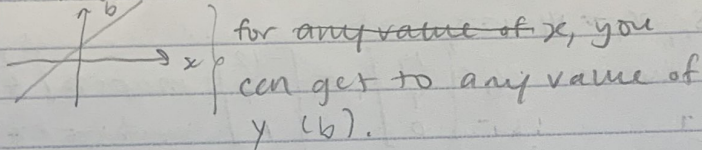 b
x
for any value of x, you
can get to any value of
y (b).